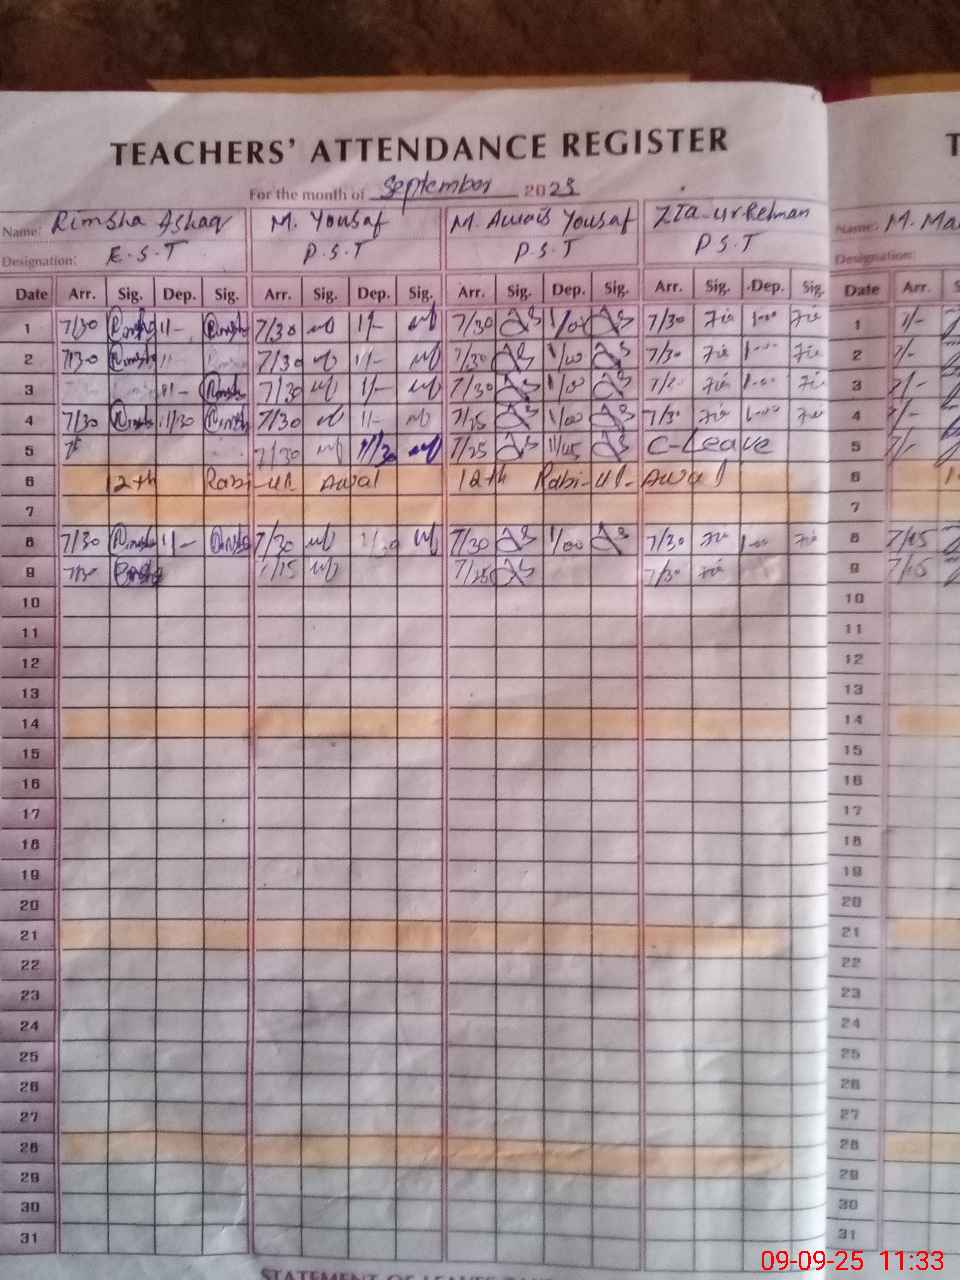 TEACHERS' ATTENDANCE REGISTER
For the month of September 2025
Name: Rimsha Ashaq M. Yousaf M. Awais Yousaf Zia-ur Rehman Name: M. Ma
Designation: E.S.T P.S.T P.S.T P.S.T Designation:
Date Arr. Sig. Dep. Sig. Arr. Sig. Dep. Sig. Arr. Sig. Dep. Sig. Arr. Sig. Dep. Sig. Date Arr. S
1 7/30 Rimsha 11/- Rimsha 7/30 11/- 7/30 1/00 7/30 Zia 1-00 Zia 1 7/-
2 7/30 Rimsha 11- 7/30 11/- 7/30 1/00 7/30 Zia Zia 2 7/-
3 11- Rimsha 7/30 11/- 7/30 1/00 Zia 1-00 Zia 3 7/-
4 7/30 Rimsha 11/30 Rimsha 7/30 11/- 7/25 1/00 7/30 Zia 1-00 Zia 4 7/-
5 7/30 11/30 7/25 11/45 C-Leave 5 7/-
6 12th Rabi-ul Awal 12th Rabi-ul-Awal 6
7 7
8 7/30 Rimsha 11- Rimsha 7/30 7/30 1/00 7/30 Zia 1-00 Zia 8 7/15
9 7/30 7/15 7/25 7/30 Zia 9 7/15
10 10
11 11
12 12
13 13
14 14
15 15
16 16
17 17
18 18
19 19
20 20
21 21
22 22
23 23
24 24
25 25
26 26
27 27
28 28
29 29
30 30
31 31
STATEMENT OF LEAVES
09-09-25 11:33